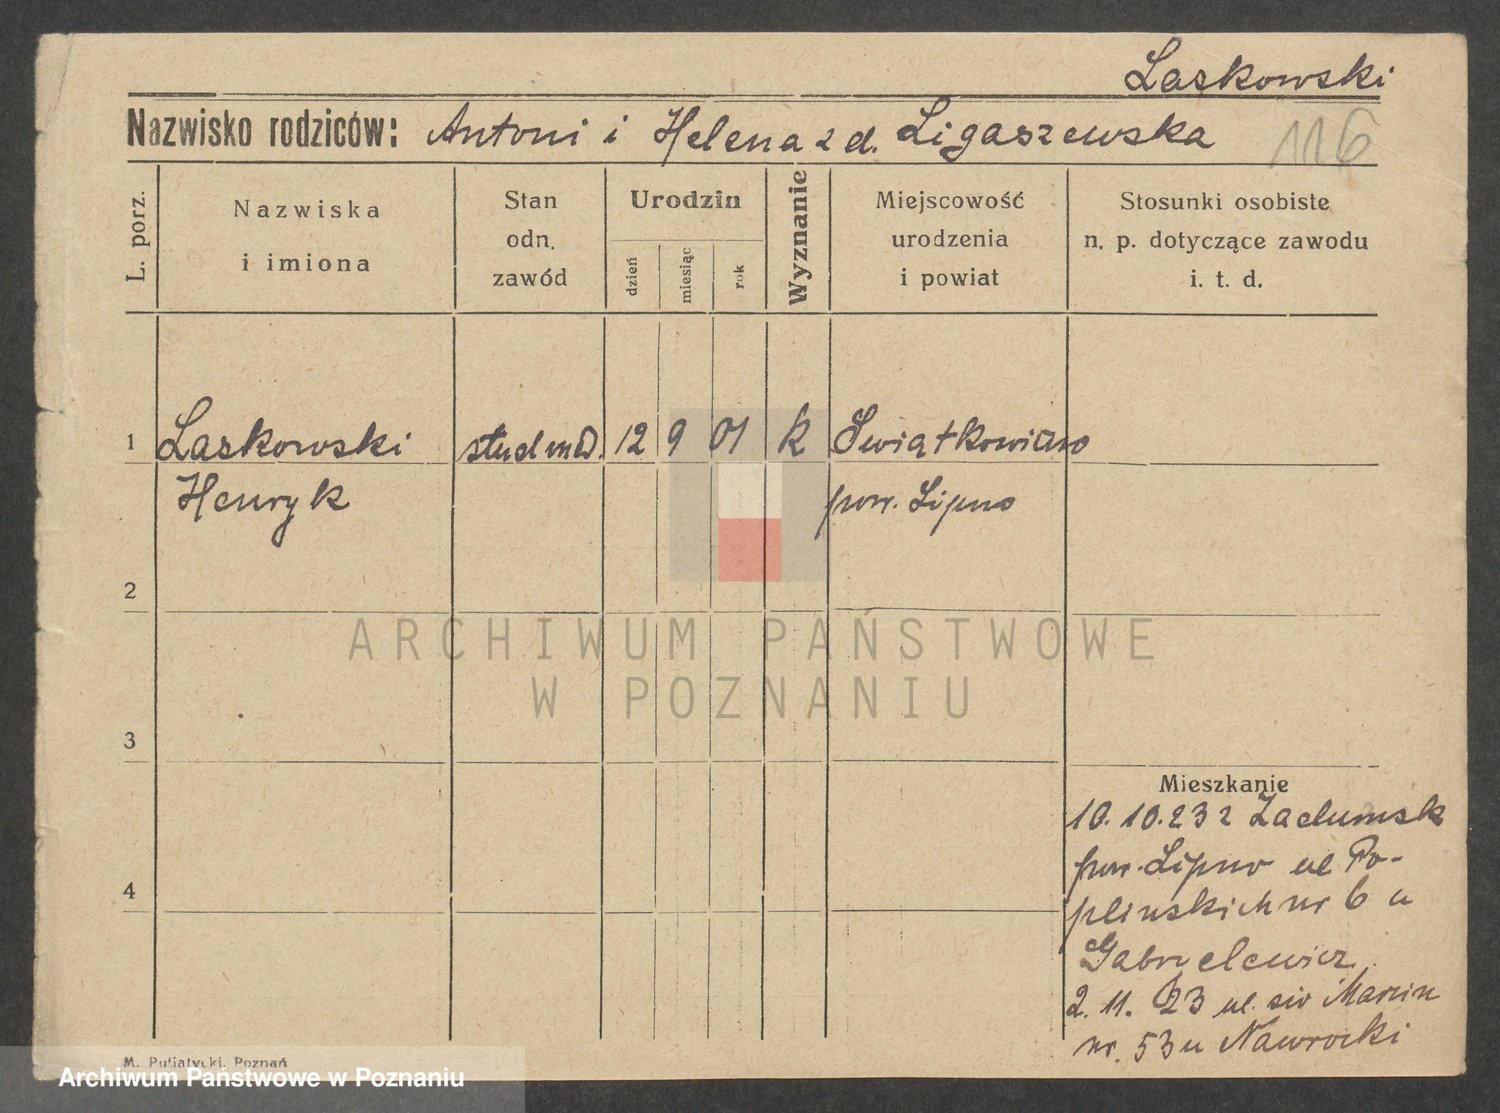 Laskowski
Nazwisko rodziców: Antoni i Helena z d. Ligaszewska
116
L. porz.
Nazwiska
i imiona
Stan
odn.
zawód
Urodzin
dzień
miesiąc
rok
Wyznanie
Miejscowość
urodzenia
i powiat
Stosunki osobiste
n. p. dotyczące zawodu
i. t. d.
1 Laskowski stud med. 12 9 01 k
Henryk pow. Lipno
2
ARCHIWUM PAŃSTWOWE
W POZNANIU
3
Mieszkanie
10.10.23 z
pow. Lipno ul Po-
plinskich nr 6 u
2.11.23 ul. św Marcin
nr. 53 u Nawrocki
4
M. Putiatycki, Poznań
Archiwum Państwowe w Poznaniu